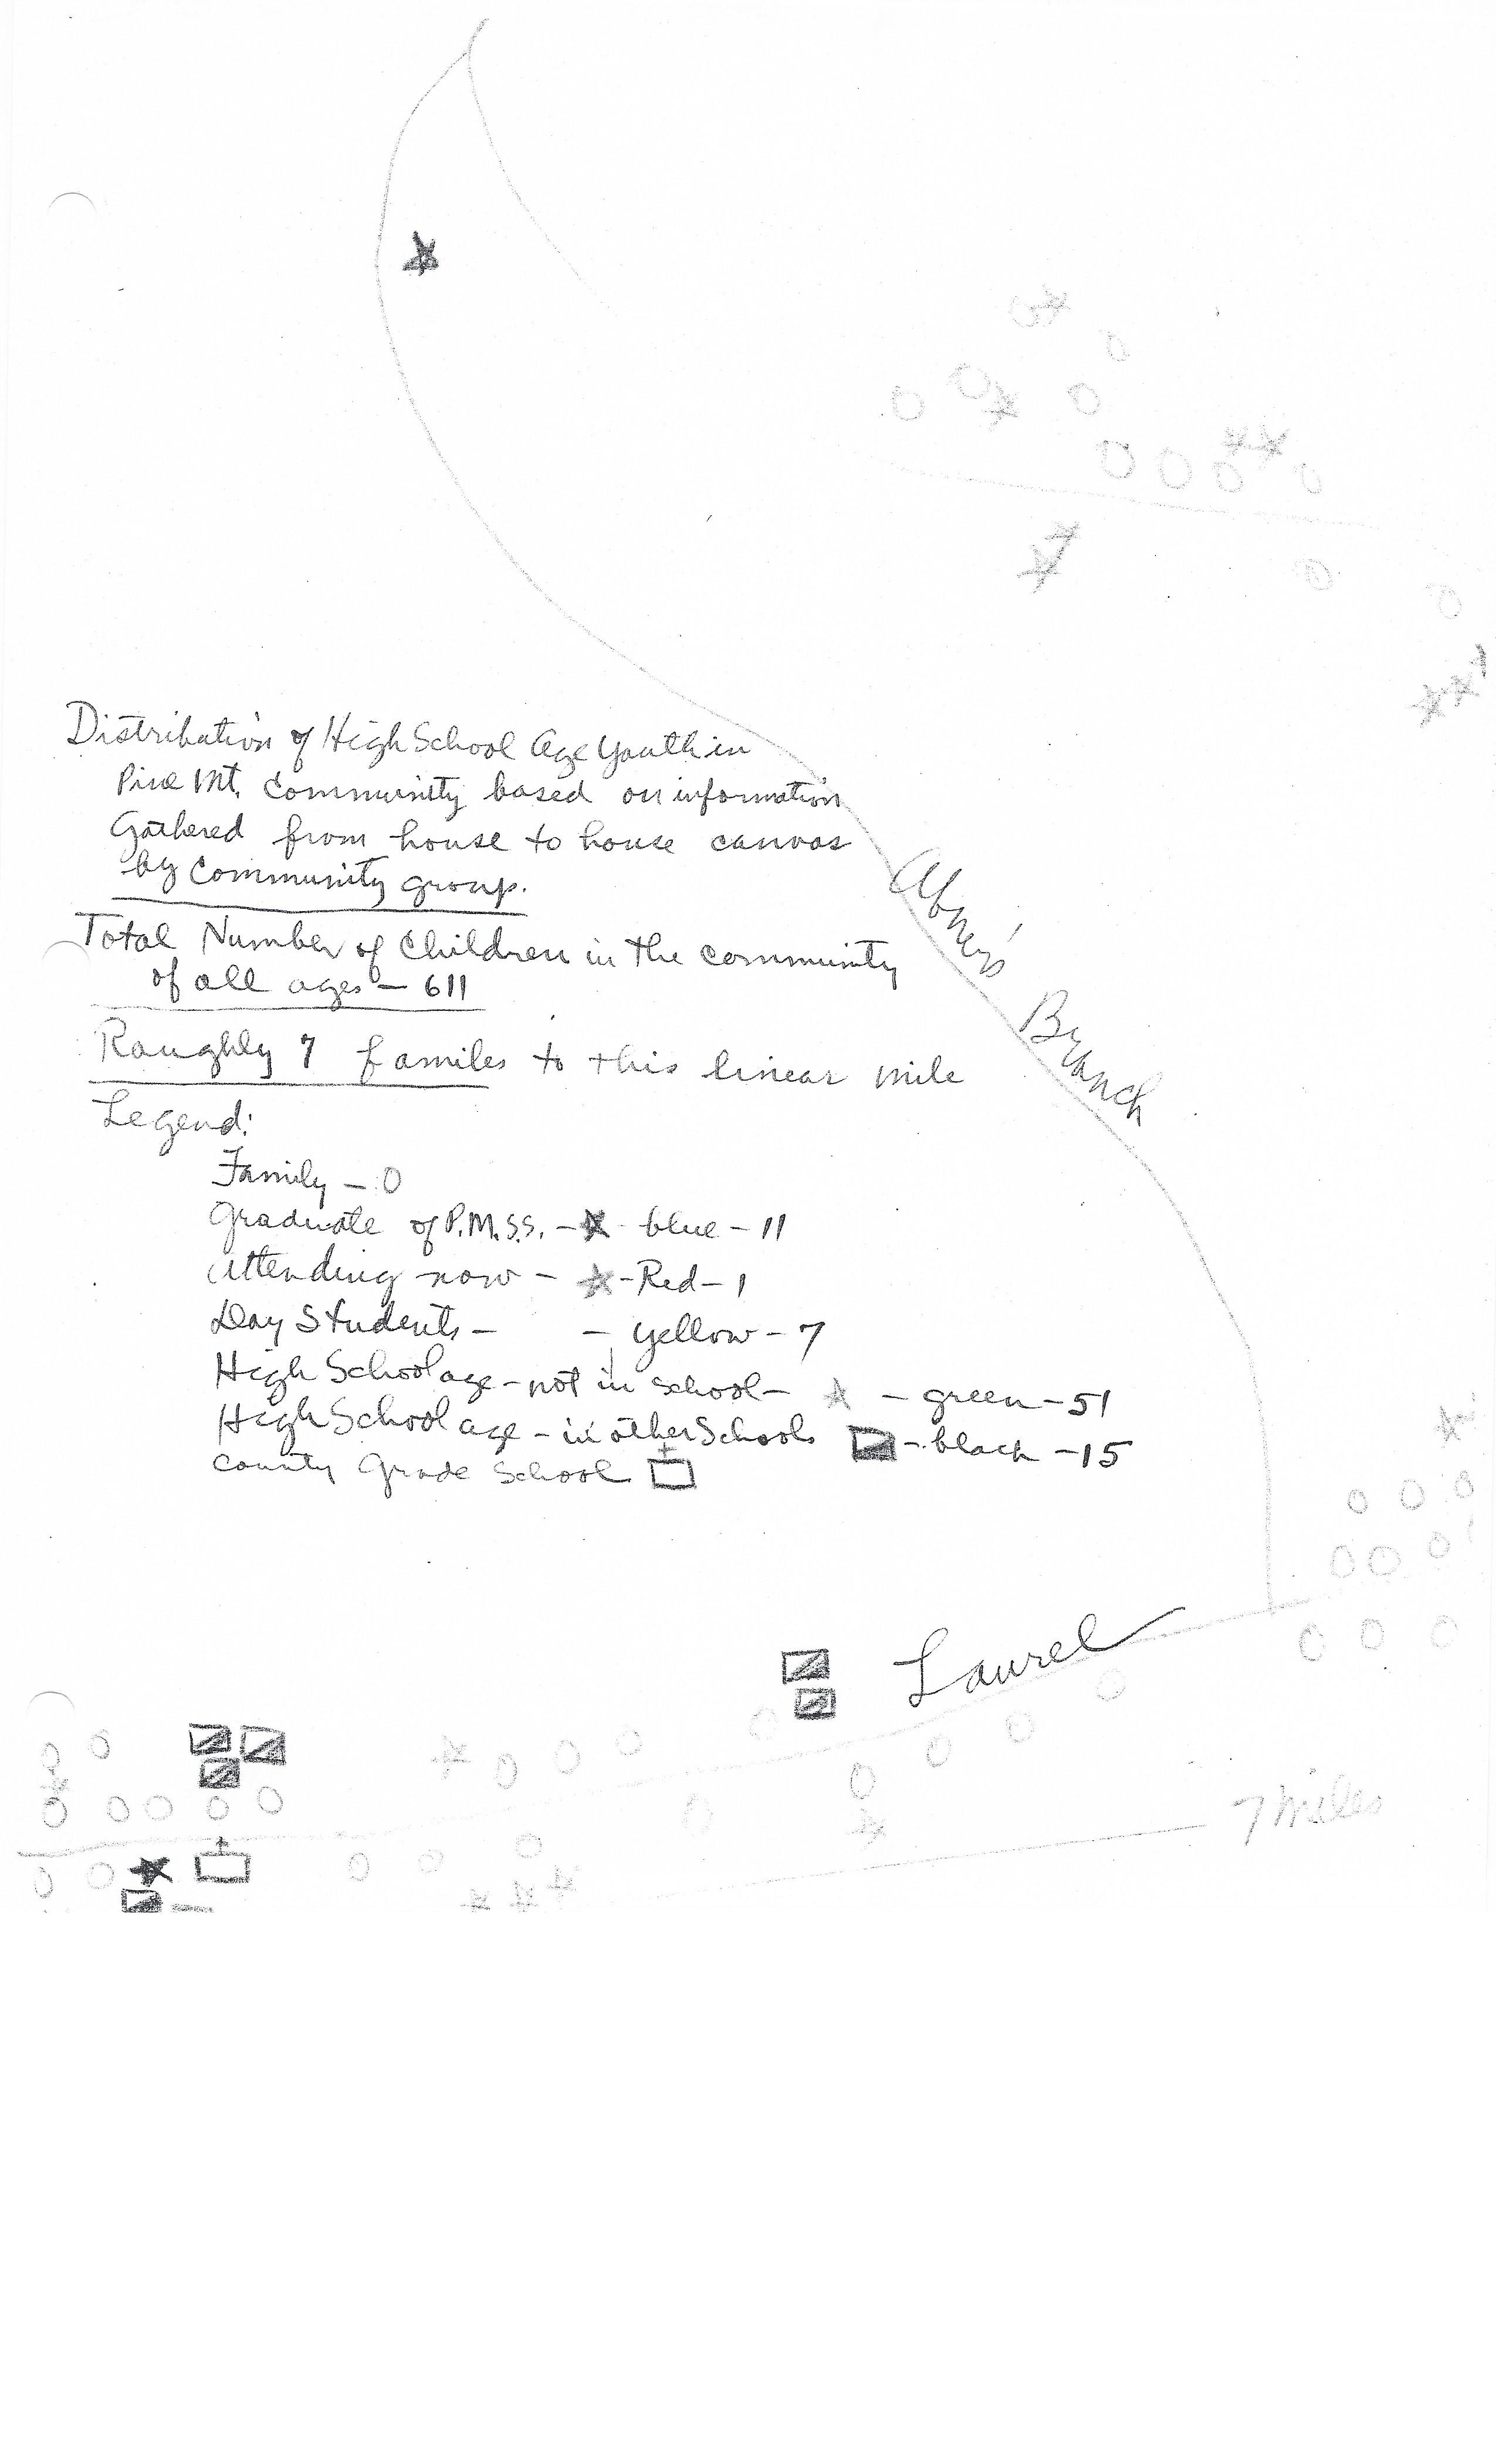 Distribution of High School Age Youth in
Pine Mt. Community based on information
Gathered from house to house canvas
by Community group.
Total Number of Children in the community
of all ages - 611
Roughly 7 familes to this linear mile
Legend:
Family - O
Graduate of P.M.S.S. - blue - 11
Attending now - Red - 1
Day Students - - yellow - 7
High School age - not in school - - green - 51
High School age - in other Schools - black - 15
County Grade School
Abner's Branch
Laurel
7 miles